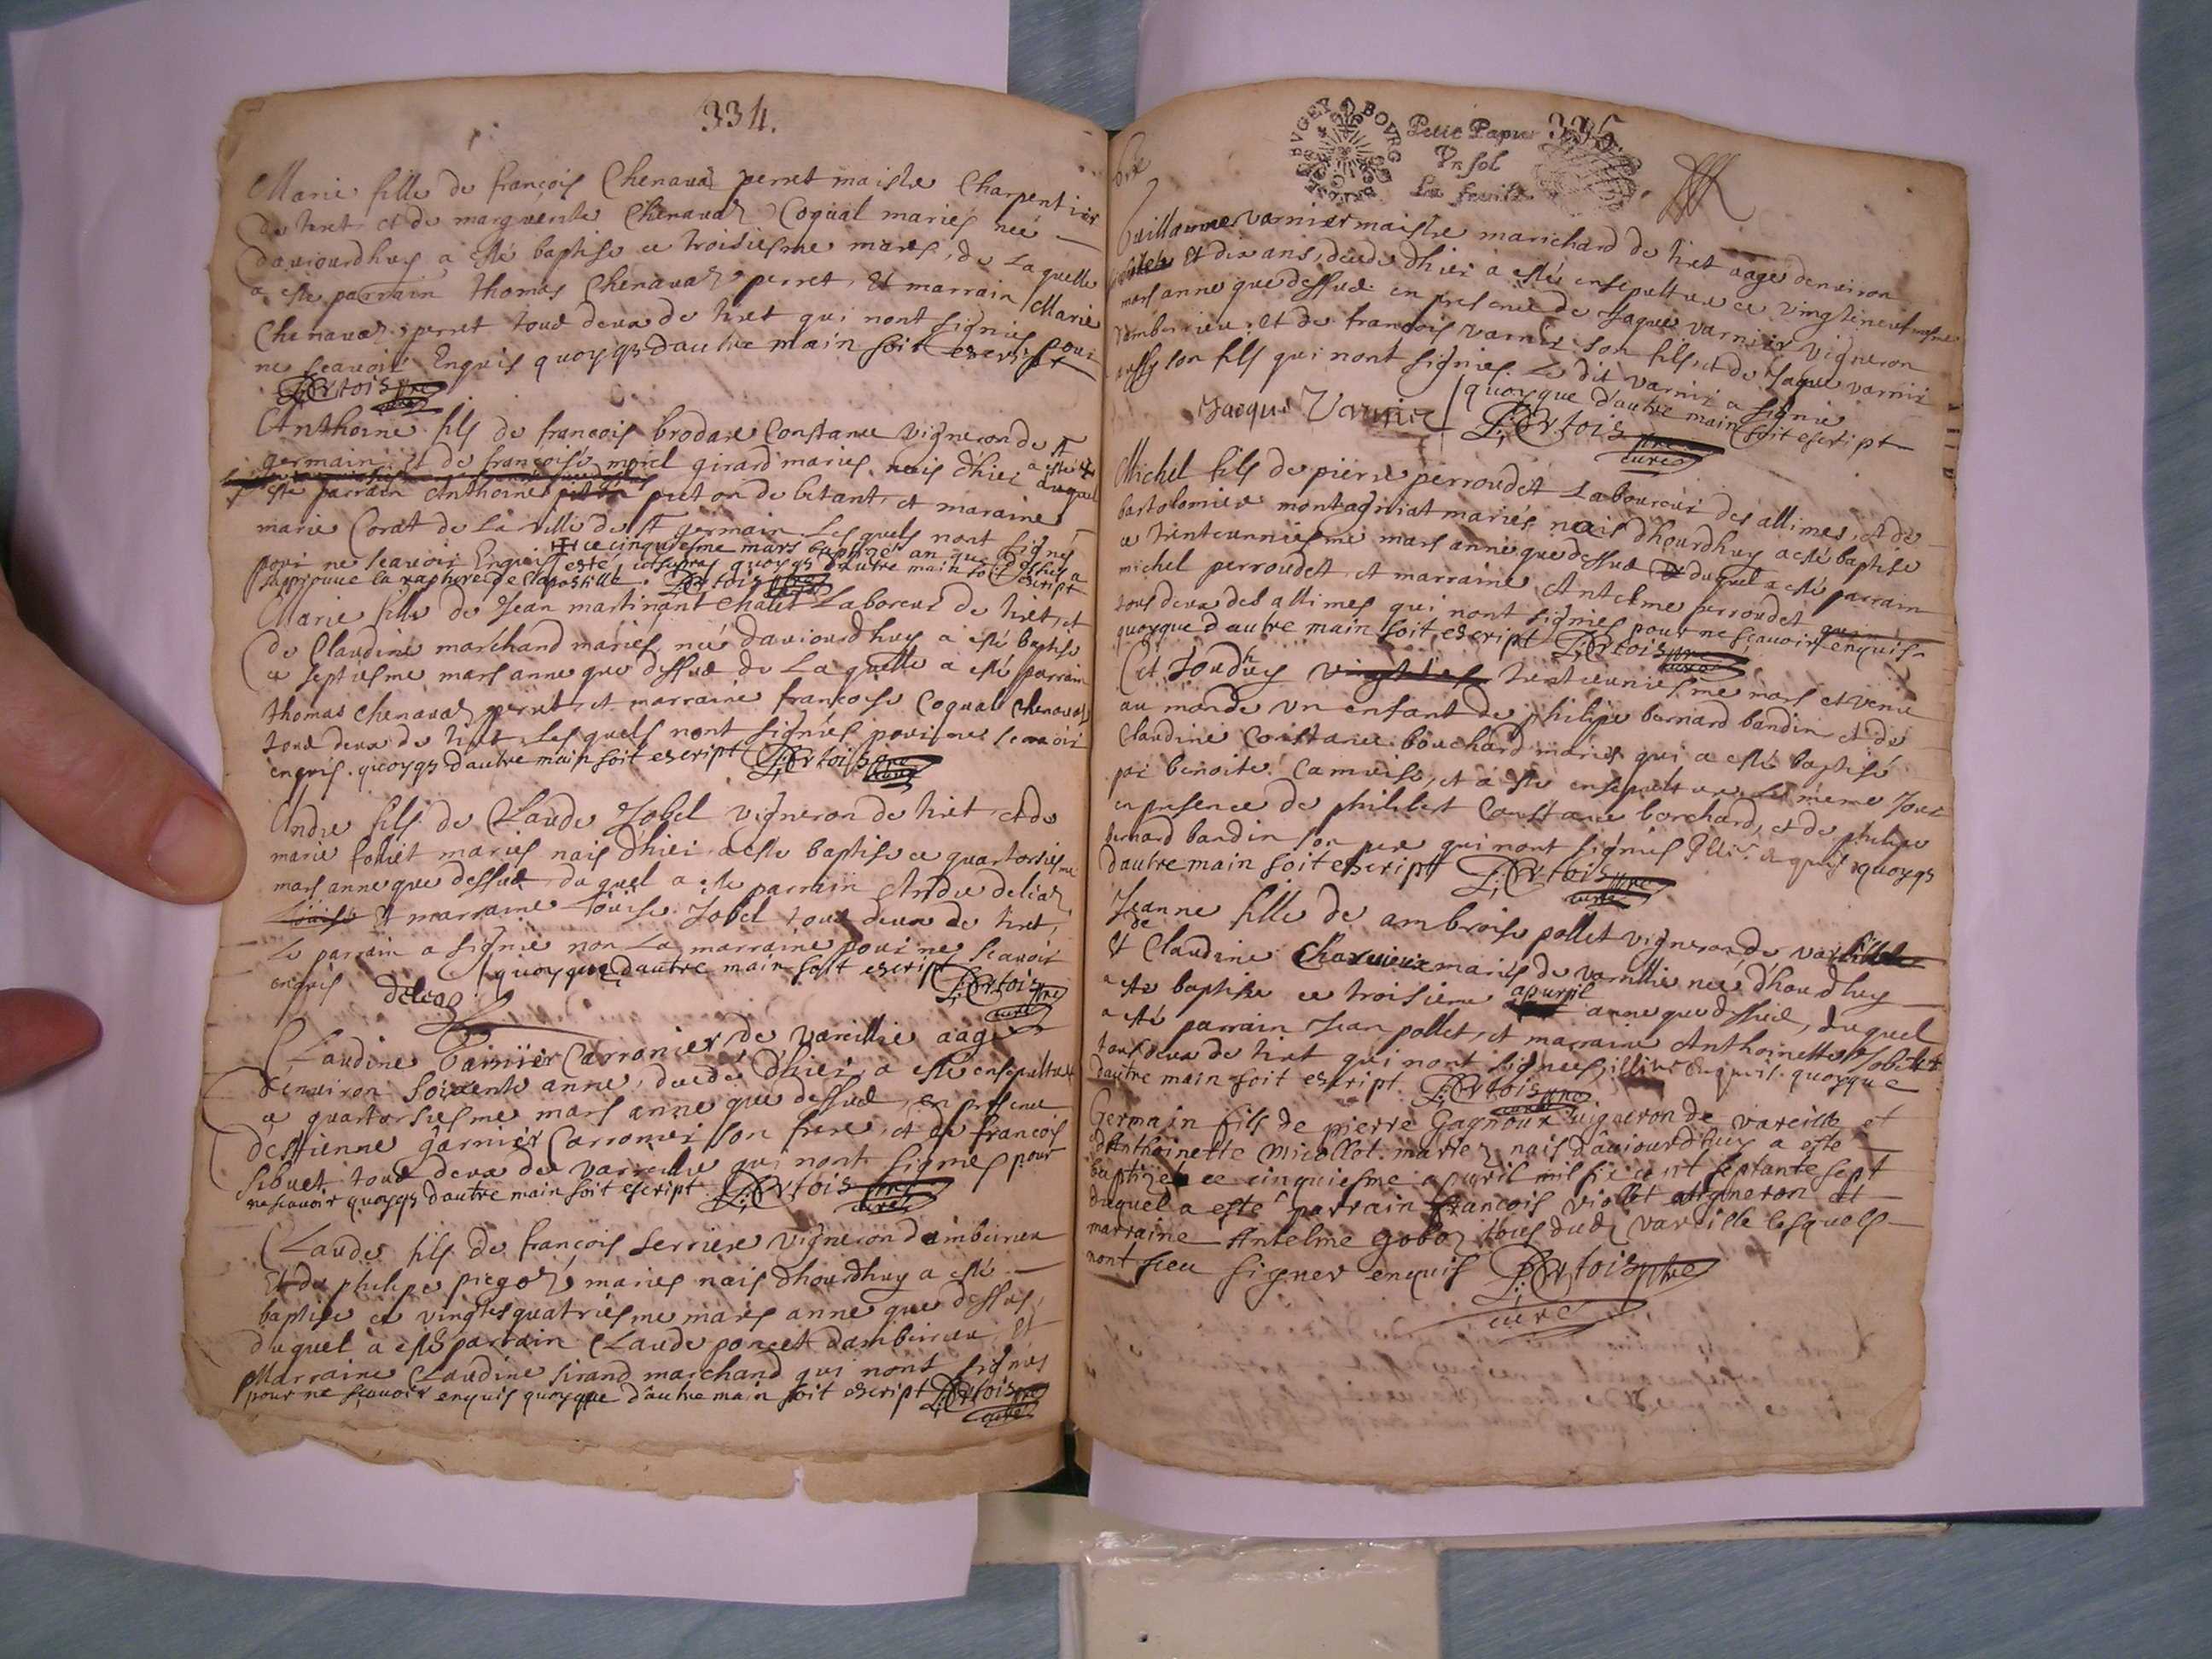 334.
Marie fille de françois Chenavaz perret maistre Charpentier
de tiret et de marguerite Chenavaz Coqual mariés née
daujourdhuy a esté baptise ce troisiesme mars, de Laquelle
a este parrain thomas Chenavaz perret, et marrain Marie
Chenavaz perret tous deux de tiret qui nont signés pour
ne scavoir Enquis quoyqs dautre main soit escript
ptre curé
Anthoine fils de françois brodare Constance Vigneron de st
germain et de françoise morel girard mariés nais dhier
este parrain Anthoine piton de betant, et maraine
marie Corat de La ville de st germain Lesquels nont signes
✝ ce cinquiesme mars baptizé an que dessus a
pour ne scavoir Enquis esté quoyqs dautre main soit escript
Japprouve la rapture de lapostille.
Marie fille de Jean martinant Chalet Laboreur de tiret, et
de Claudine marchand mariés née daujourdhuy a esté baptise
ce septiesme mars anne que dessus de Laquelle a esté parrain
thomas chenavaz perret, et marraine françoise Coqual Chenavaz
tous deux de tiret, Lesquels nont signés pour ne scavoir
enquis. quoyqs dautre main soit escript
Andre fils de Claude Jobel vigneron de tiret et de
marie foliet mariés nais dhier a este baptise ce quartorsiesme
mars anne que dessus duquel a este parrain Andre deliaz
Louise et marraine Louise Jobel tous deux de tiret,
Le parrain a signé non La marraine pour ne scavoir
enquis quoyque dautre main soit escript
ptre curé
Claudine Garnier Carronier de vareille aagé
denviron soixente anne, decede dhier, a este ensepulture
ce quartorsiesme mars anne que dessus, en presence
destienne garnier Carronier son frere, et de françois
Sibuet tous deux de varreille qui nont signés pour
ne scavoir quoyqs dautre main soit escript
Claude fils de françois Serriere vigneron dambeirieu
Et de philipe piegoz mariés nais dhourdhuy a esté
baptise ce vingtesquatriesme mars anne que dessus,
duquel a esté parrain Claude poncet dambeirieu, et
Marraine Claudine sirand marchand qui nont signés
pour ne scavoir enquis quoyque dautre main soit escript
BVGEY BOVRG
Petit Papier 335
Vn sol
La feuille
Guillaume varnier maistre marichard de tiret aage denviron
et dix ans, decede dhier a esté ensepulture ce vingtineufviesme
mars anne que dessus en presence de Jaque varnier vigneron
dambeirieu, et de françois varnier son fils, et de Jaque varnier
aussy son fils qui nont signies Le dit varnier a signie
quoyque dautre main soit escript
Jacque Varnier
ptre curé
Michel fils de pierre perroudet Laboureur des allimes, et de
bartolomiere montagniat mariés nais dhourdhuy a esté baptise
ce trenteunniesme mars anne que dessus duquel a esté parrain
michel perroudet, et marraine Antelme perroudet
tous deux des allimes qui nont signies pour ne scavoir enquis
quoyque dautre main soit escript
Cet Jourdhuy trenteuniesme mars est venu
au monde un enfant de philipe bernard bandin et de
Claudine Constance bouchard mariés qui a esté baptisé
par benoite Camuise, et a este ensepulture Le meme Jour
en presence de philibert Constance borchard, et de philipe
bernard bandin son pere qui nont signies enquis quoyqs
dautre main soit escript
Jeanne fille de ambroise pollet vigneron de vareille
et de Claudine Charvieux mariés de vareille nee dhourdhuy
a este baptise ce troisieme apuril anne que dessus, duquel
a esté parrain Jean pollet, et marraine Anthoinette Jobelet
tous deux de tiret qui nont signees, enquis. quoyque
dautre main soit escript
Germain fils de pierre Gagnoux vigneron de vareille et
danthoinette Micollet mariez nais daujourdhuy a esté
baptizé ce cinquiesme apuril mil six cent septante sept
duquel a esté parrain francois viollet vigneron et
marraine Antelme goboz tous dud vareille lesquels
nont sceu signer enquis
ptre
curé